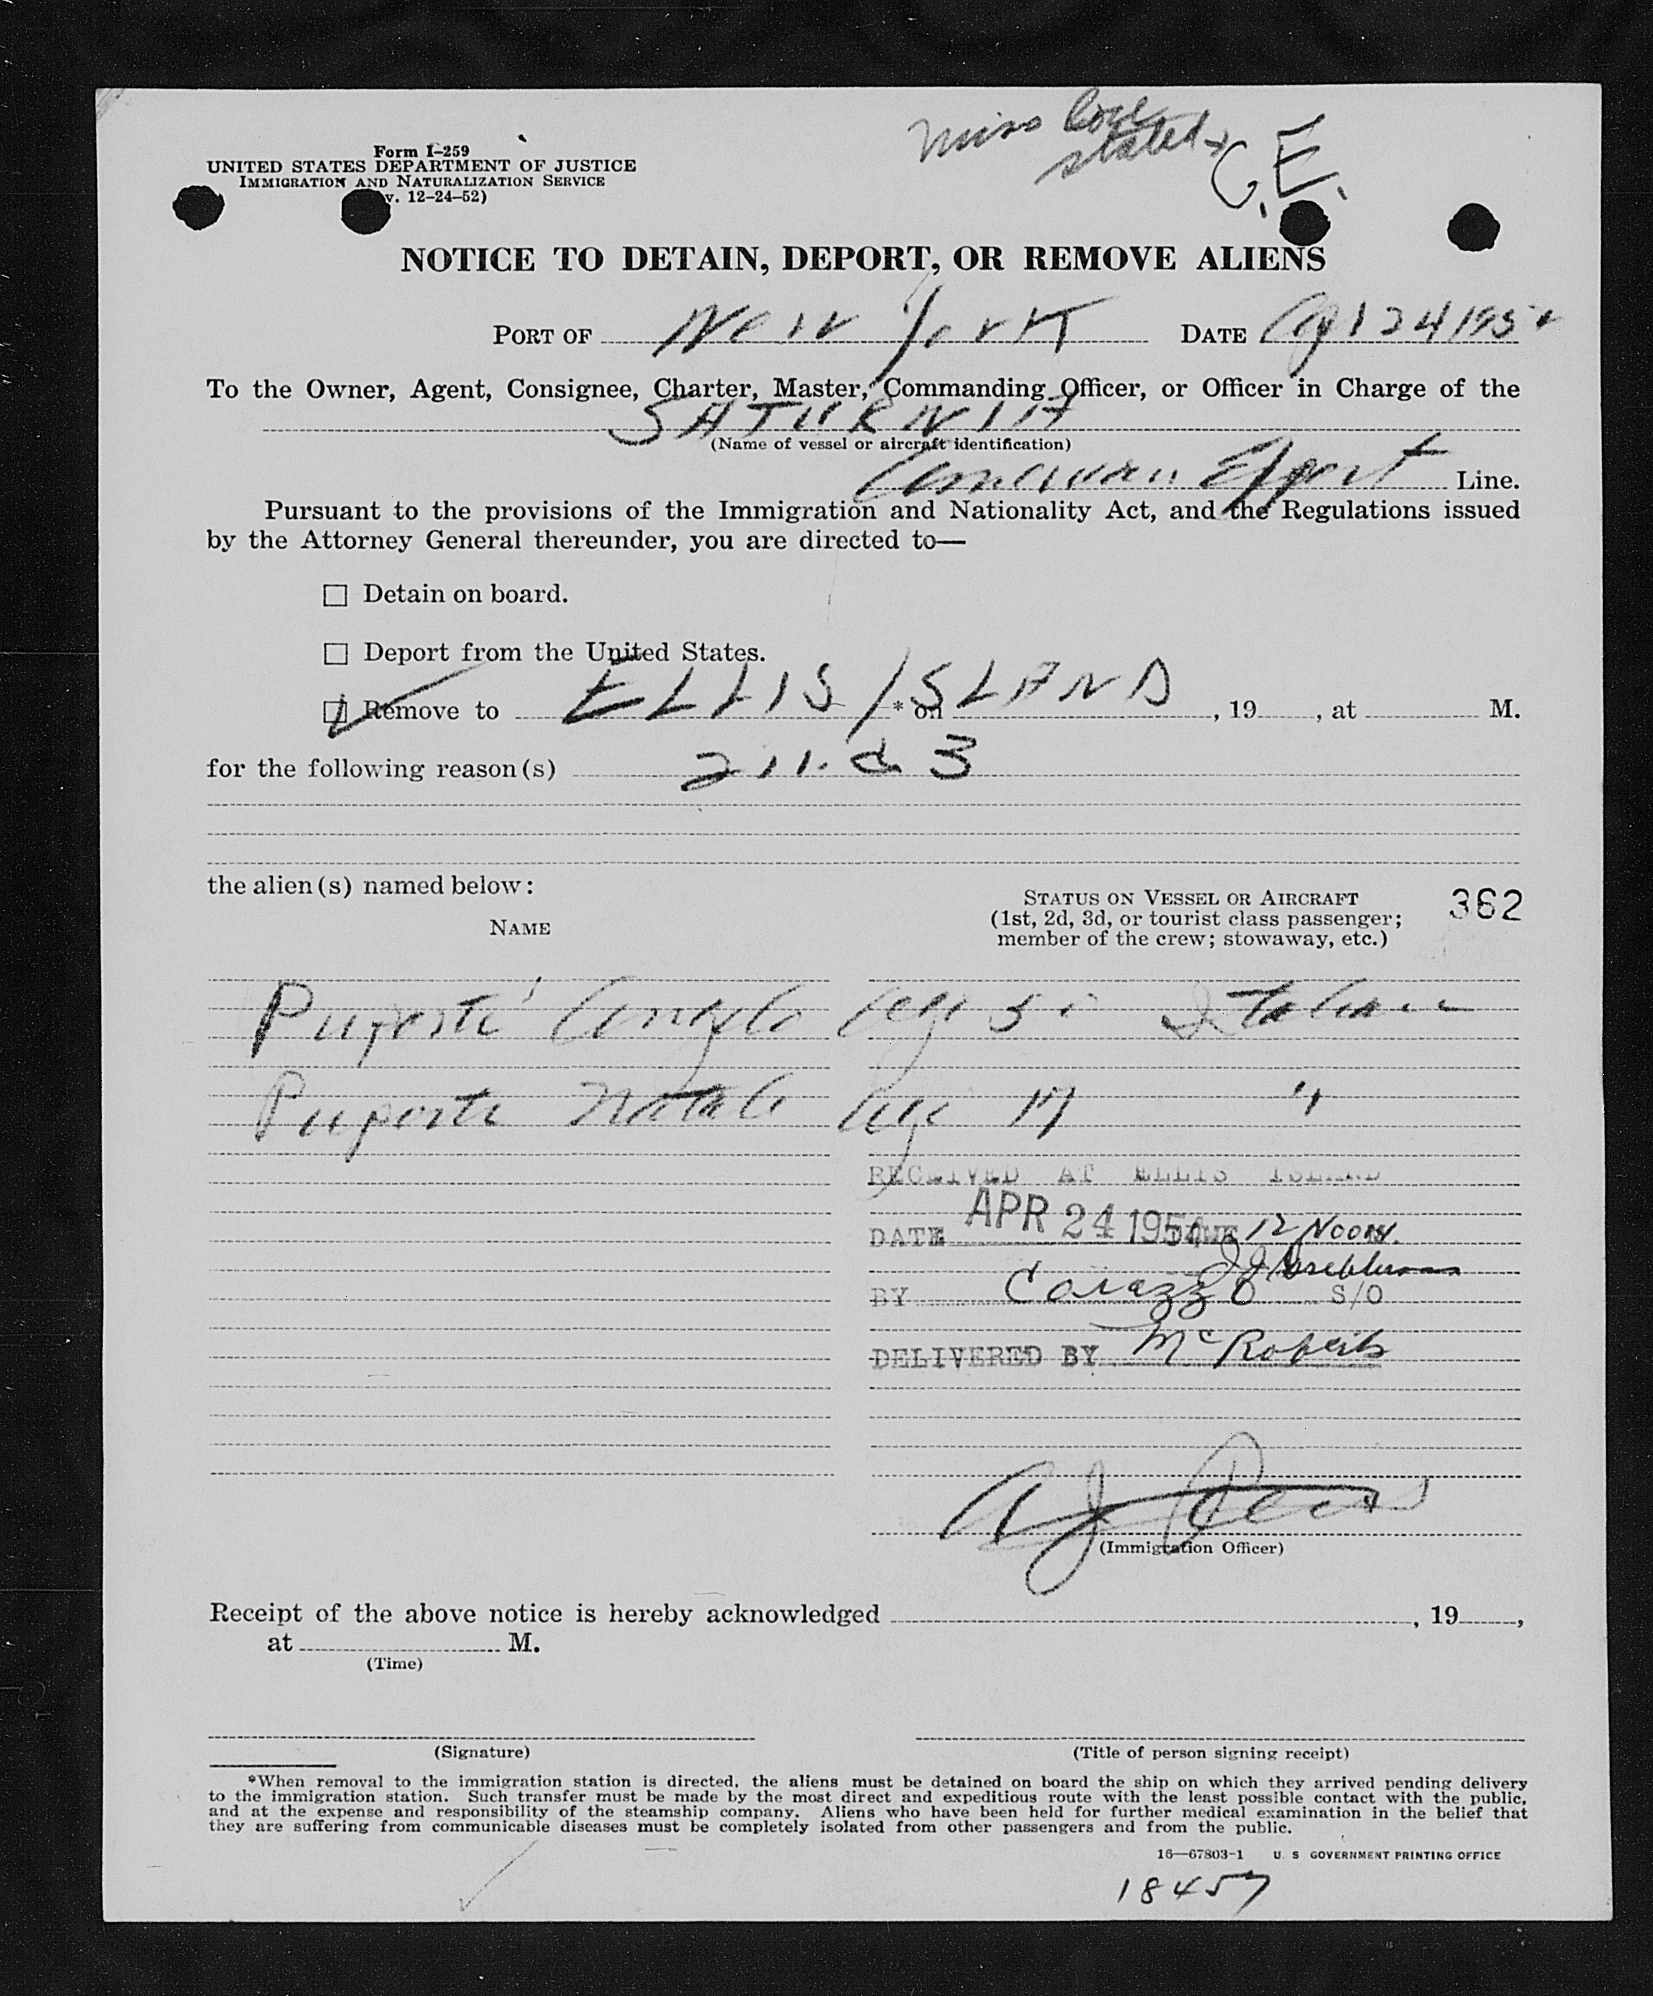 Miss
stated
C.E.
Form I-259
UNITED STATES DEPARTMENT OF JUSTICE
IMMIGRATION AND NATURALIZATION SERVICE
v. 12-24-52)
NOTICE TO DETAIN, DEPORT, OR REMOVE ALIENS
PORT OF New York DATE 24 195
To the Owner, Agent, Consignee, Charter, Master, Commanding Officer, or Officer in Charge of the
SATURNIA
(Name of vessel or aircraft identification)
American Export Line.
Pursuant to the provisions of the Immigration and Nationality Act, and the Regulations issued
by the Attorney General thereunder, you are directed to—
☐ Detain on board.
☐ Deport from the United States.
☑ Remove to ELLIS ISLAND * on , 19 , at M.
for the following reason(s) 211. a 3
the alien(s) named below:
NAME
STATUS ON VESSEL OR AIRCRAFT
(1st, 2d, 3d, or tourist class passenger;
member of the crew; stowaway, etc.)
362
Angelo Age Italian
Natale Age 17 "
RECEIVED AT ELLIS ISLAND
DATE APR 24 1954 TIME 12 NOON.
BY Corazzo S/O
DELIVERED BY McRoberts
A J
(Immigration Officer)
Receipt of the above notice is hereby acknowledged , 19 ,
at M.
(Time)
(Signature)
(Title of person signing receipt)
*When removal to the immigration station is directed, the aliens must be detained on board the ship on which they arrived pending delivery
to the immigration station. Such transfer must be made by the most direct and expeditious route with the least possible contact with the public,
and at the expense and responsibility of the steamship company. Aliens who have been held for further medical examination in the belief that
they are suffering from communicable diseases must be completely isolated from other passengers and from the public.
16—67803-1 U. S GOVERNMENT PRINTING OFFICE
18457